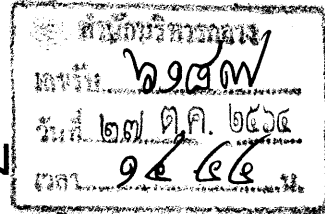 สำนักบริหารกลาง
เลขรับ ๖๑๘๗
วันที่ ๒๗ ต.ค. ๒๕๖๔
เวลา ๑๔.๔๔ น.